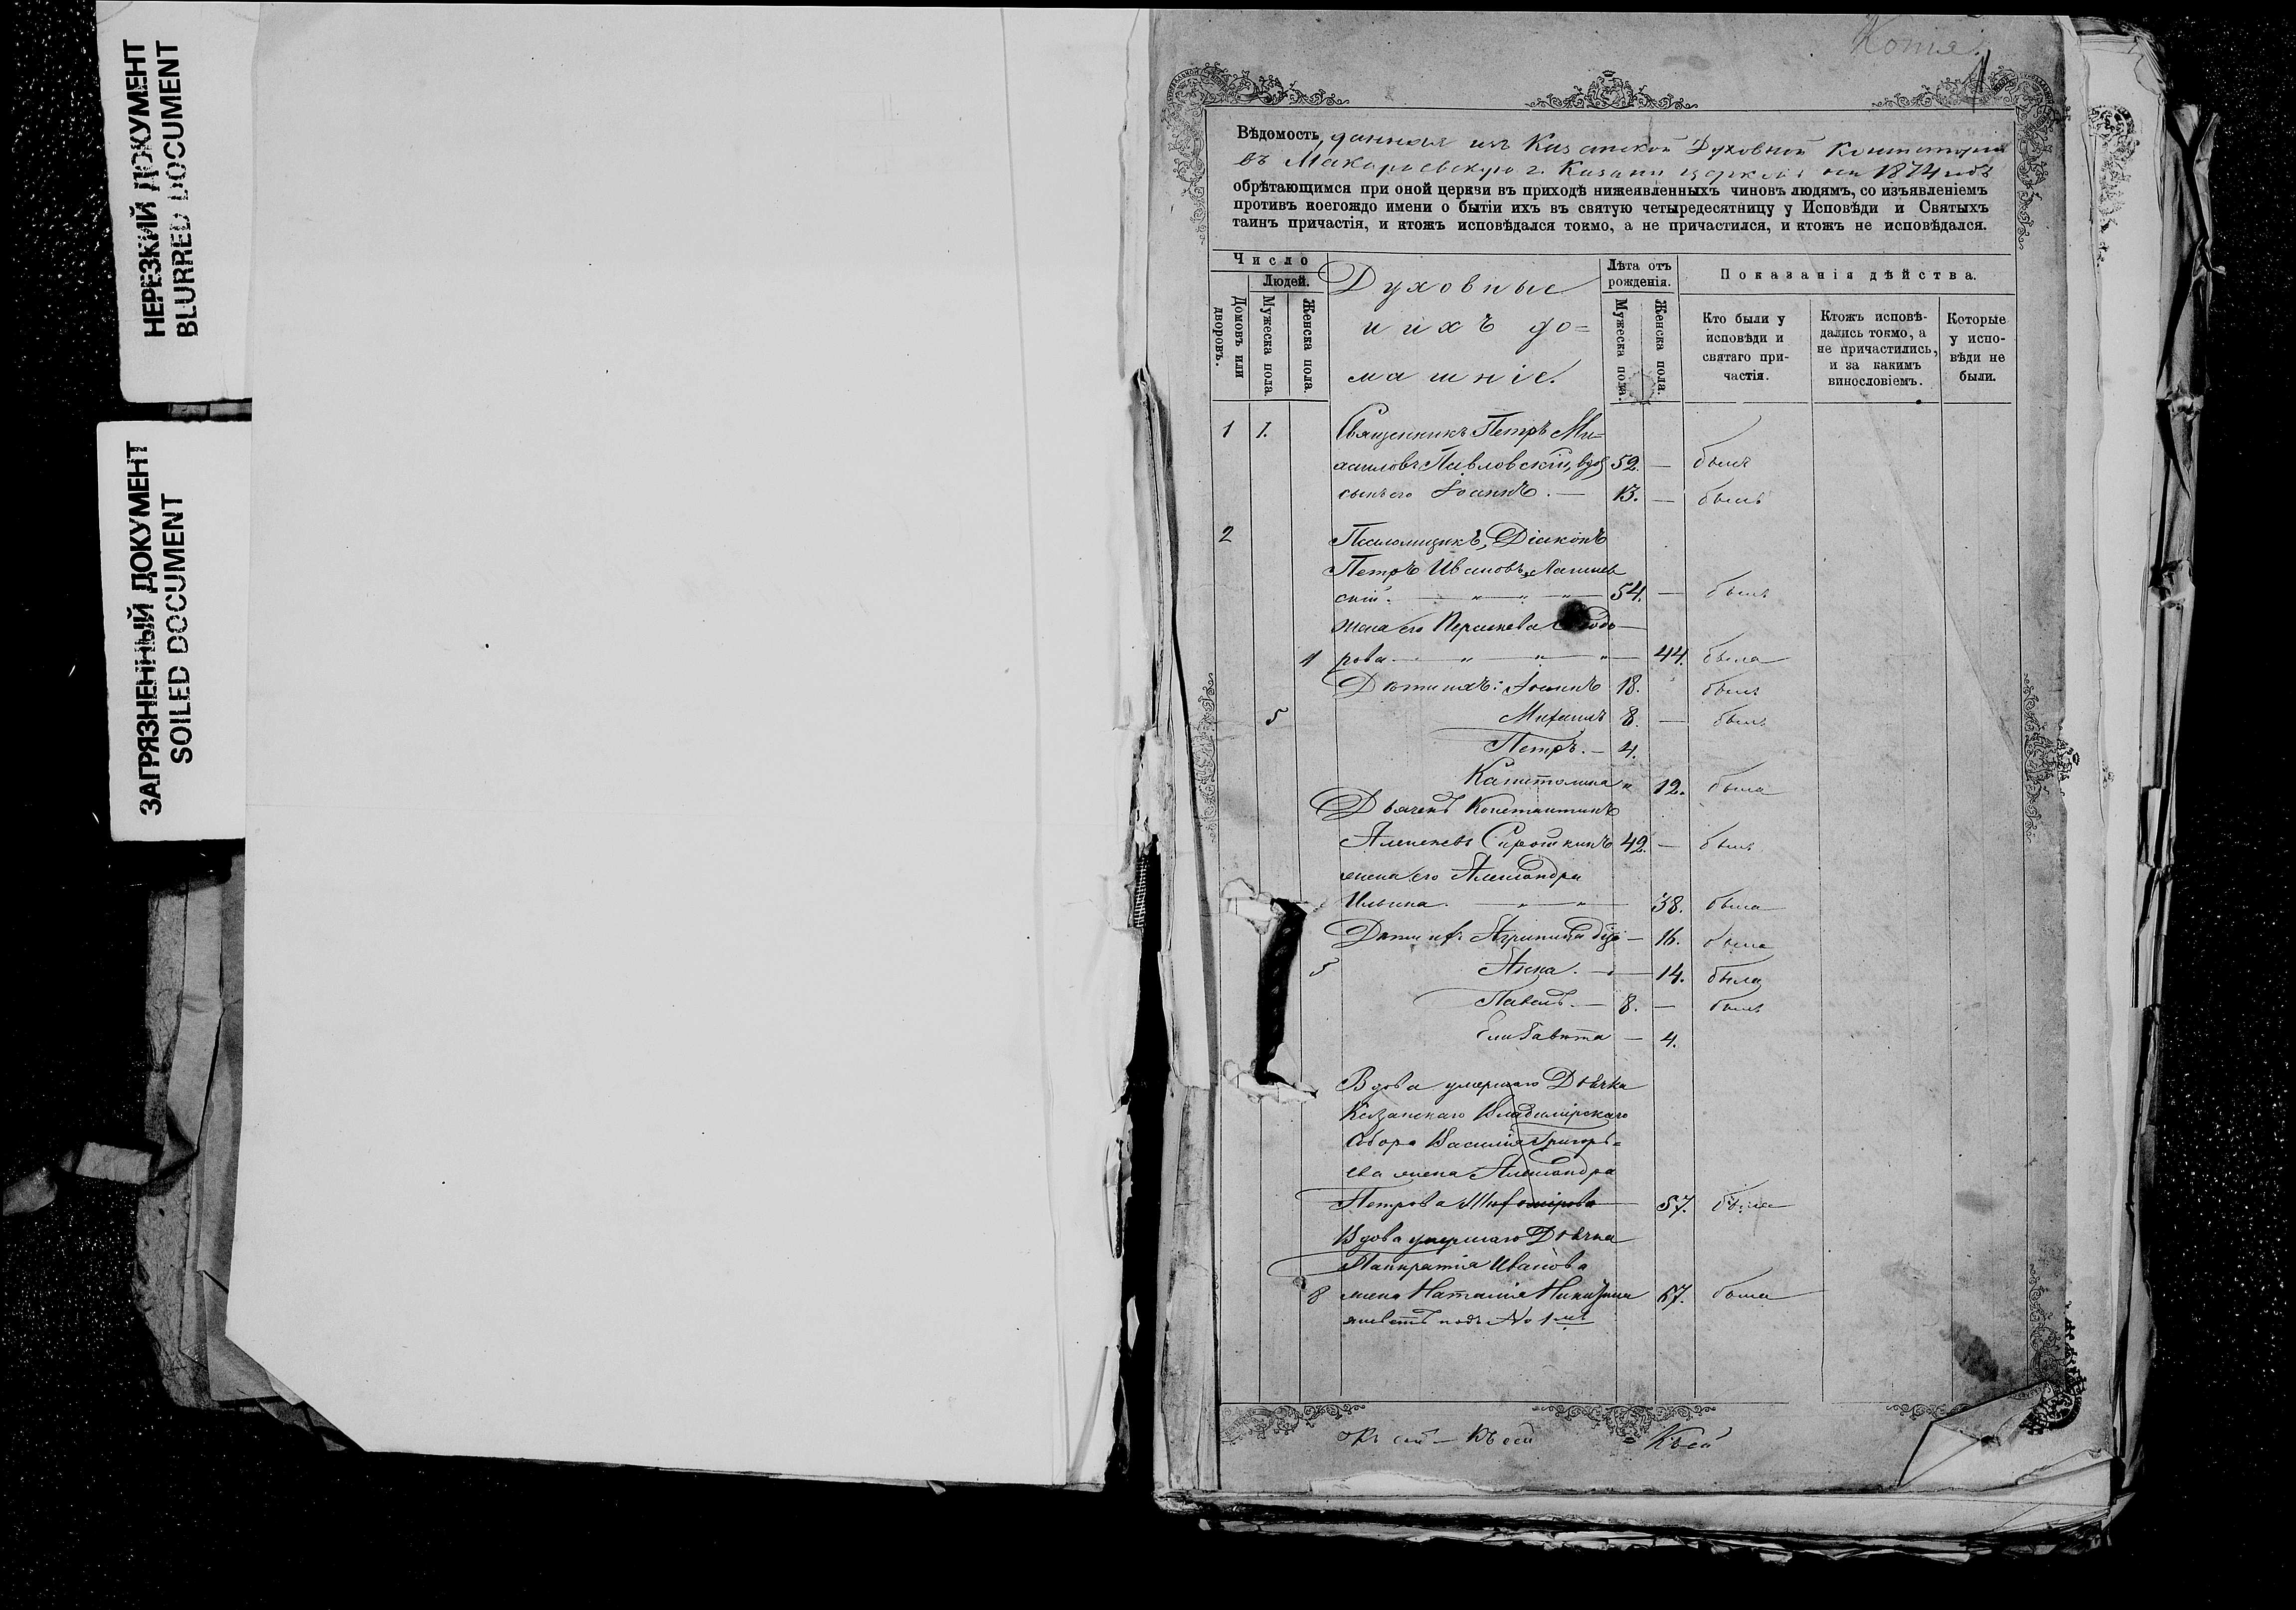 НЕРЕЗКИЙ ДОКУМЕНТ
BLURRED DOCUMENT
ЗАГРЯЗНЕННЫЙ ДОКУМЕНТ
SOILED DOCUMENT
Копія
1
Вѣдомость, данная изъ Казанской Духовной Консисторіи
въ Макарьевскую г. Казани церковь на 1874 годъ
обрѣтающимся при оной церкви въ приходѣ нижеявленныхъ чиновъ людямъ, со изъявленіемъ
противъ коегождо имени о бытіи ихъ въ святую четыредесятницу у Исповѣди и Святыхъ
таинъ причастія, и ктожъ исповѣдался токмо, а не причастился, и ктожъ не исповѣдался.
Число
Людей.
Домовъ или дворовъ.
Мужеска пола
Женска пола.
Духовные
и ихъ до=
машніе.
Лѣта отъ рожденія.
Мужеска пола.
Женска пола.
Показанія дѣйства.
Кто были у исповѣди и святаго причастія.
Ктожъ исповѣдались токмо, а не причастились, и за какимъ винословіемъ.
Которые у исповѣди не были.
1 1. Священникъ Петръ Ми=
хаиловъ Павловскій, вдов 52. — былъ
сынъ его Іоаннъ. — 13. — былъ
2 Псаломщикъ, Діаконъ
Петръ Ивановъ
скій. 54. — былъ
жена его Параскева Ѳеодо—
1 рова 44. была
Дѣти ихъ: Іоаннъ 18. былъ
5 Михаилъ 8. — былъ
Петръ. — 4.
Капитолина " 12. была
Дьячекъ Константинъ
Алексѣевъ Сироткинъ 42. — былъ
жена его Александра
Ильина. 38. была
Дѣти ихъ — 16. была
5 Анна. — 14. была
Павелъ. — 8. — былъ
Елизавета — 4.
Вдова умершаго Дьячка
Казанскаго Владимірскаго
Собора Василія Григорь=
ева жена Александра
Петрова 57. была
Вдова умершаго Дьячка
Панкратія Иванова
8 жена Наталія 67. была
живетъ подъ № 1мъ
Къ сей